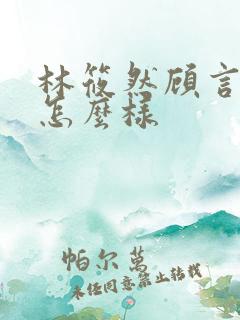 林筱然顾言
怎麼样
帕尔萬
未经同意禁止转载